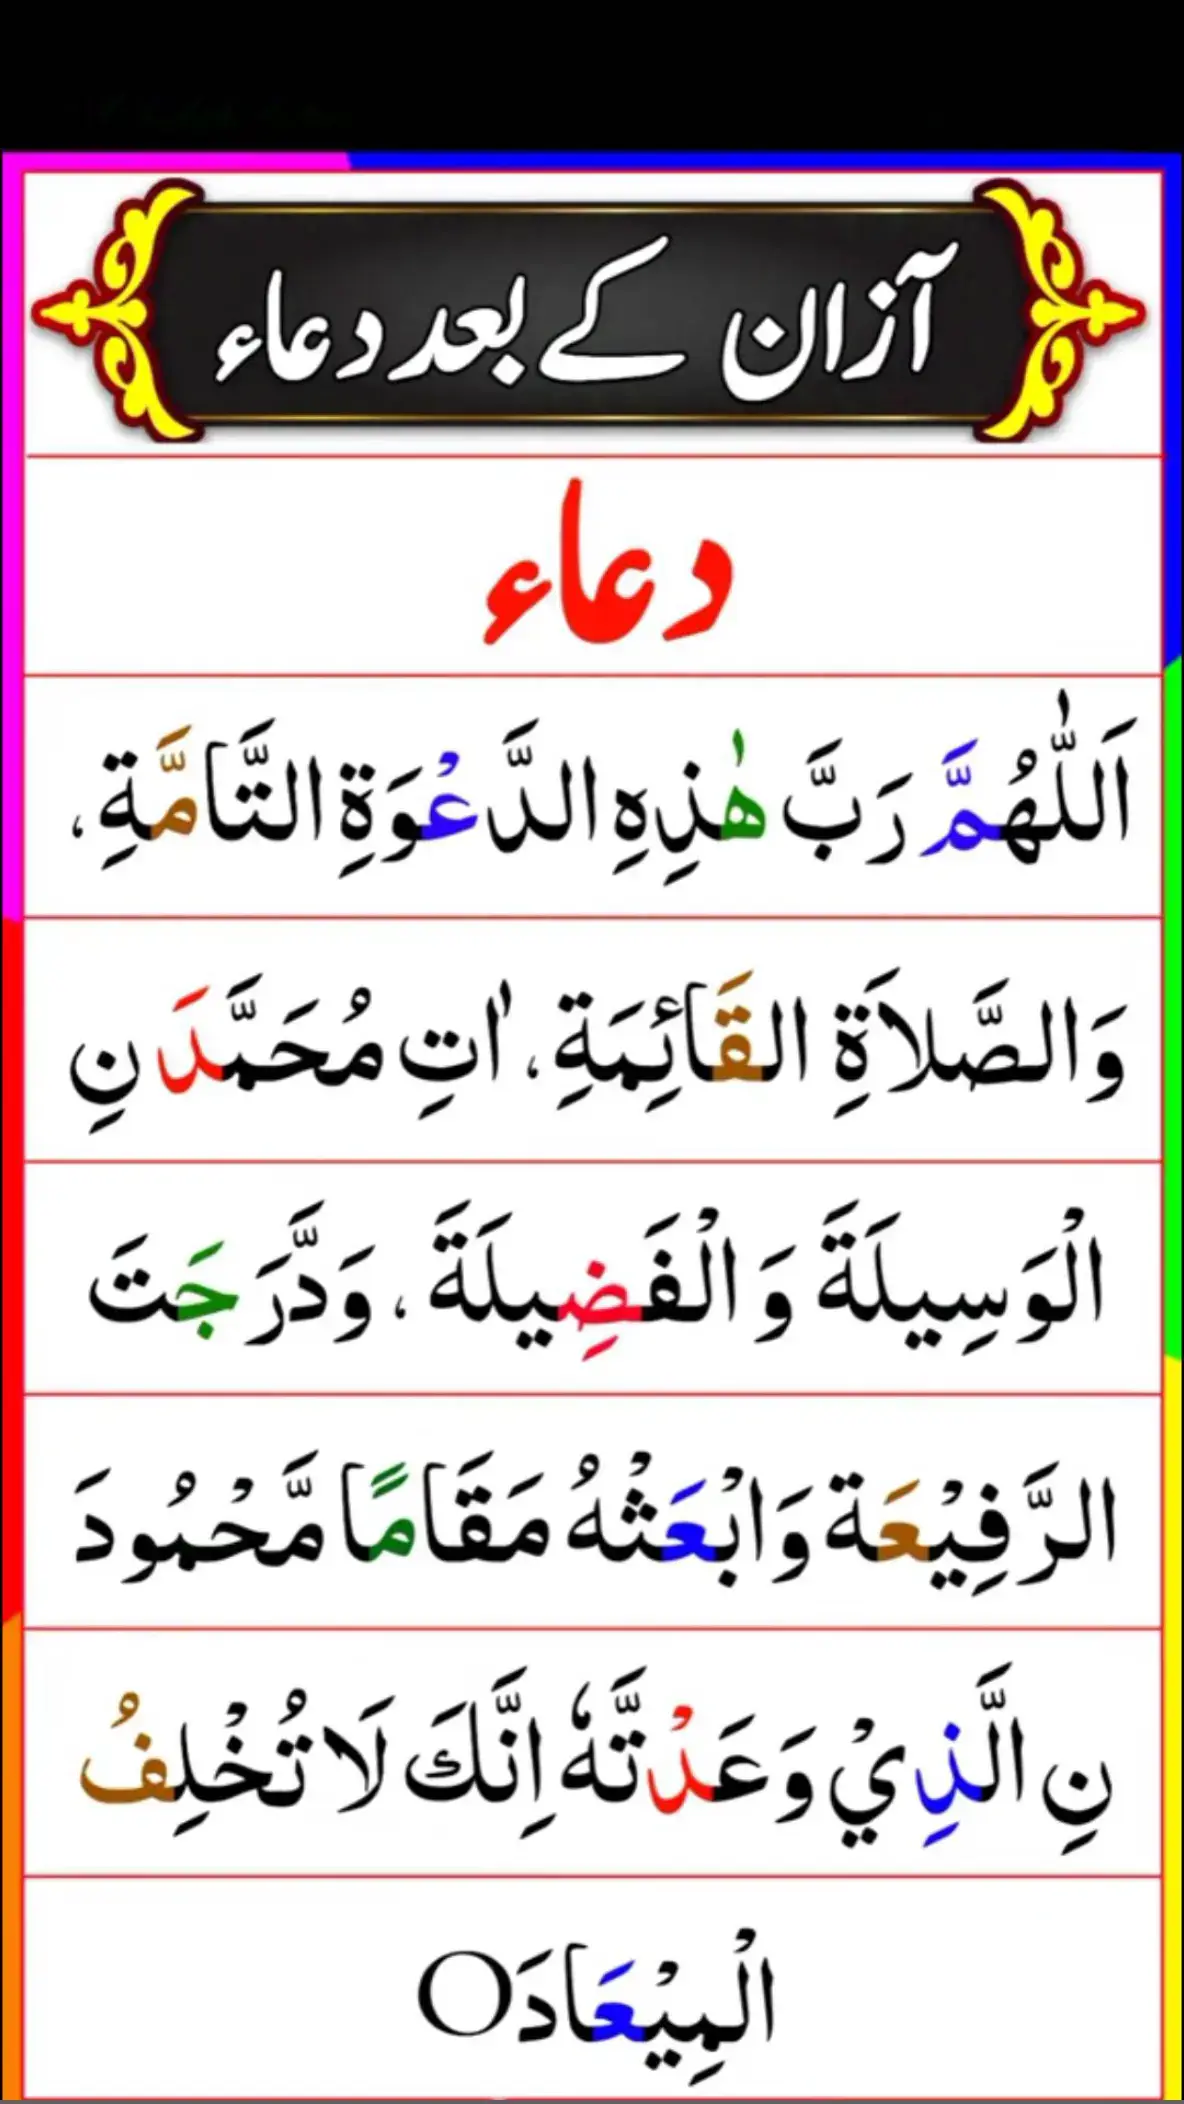 آزان کے بعد دعاء
دعاء
اَللّٰهُمَّ رَبَّ هٰذِهِ الدَّعْوَةِ التَّامَّةِ،
وَالصَّلاَةِ القَائِمَةِ، اٰتِ مُحَمَّدَ نِ
الْوَسِيلَةَ وَ الْفَضِيلَةَ ، وَدَّرَجَتَ
الرَّفِيْعَة وَابْعَثْهُ مَقَامًا مَّحْمُودَ
نِ الَّذِيْ وَعَدْتَّهٗ اِنَّكَ لَا تُخْلِفُ
الْمِيْعَادَO